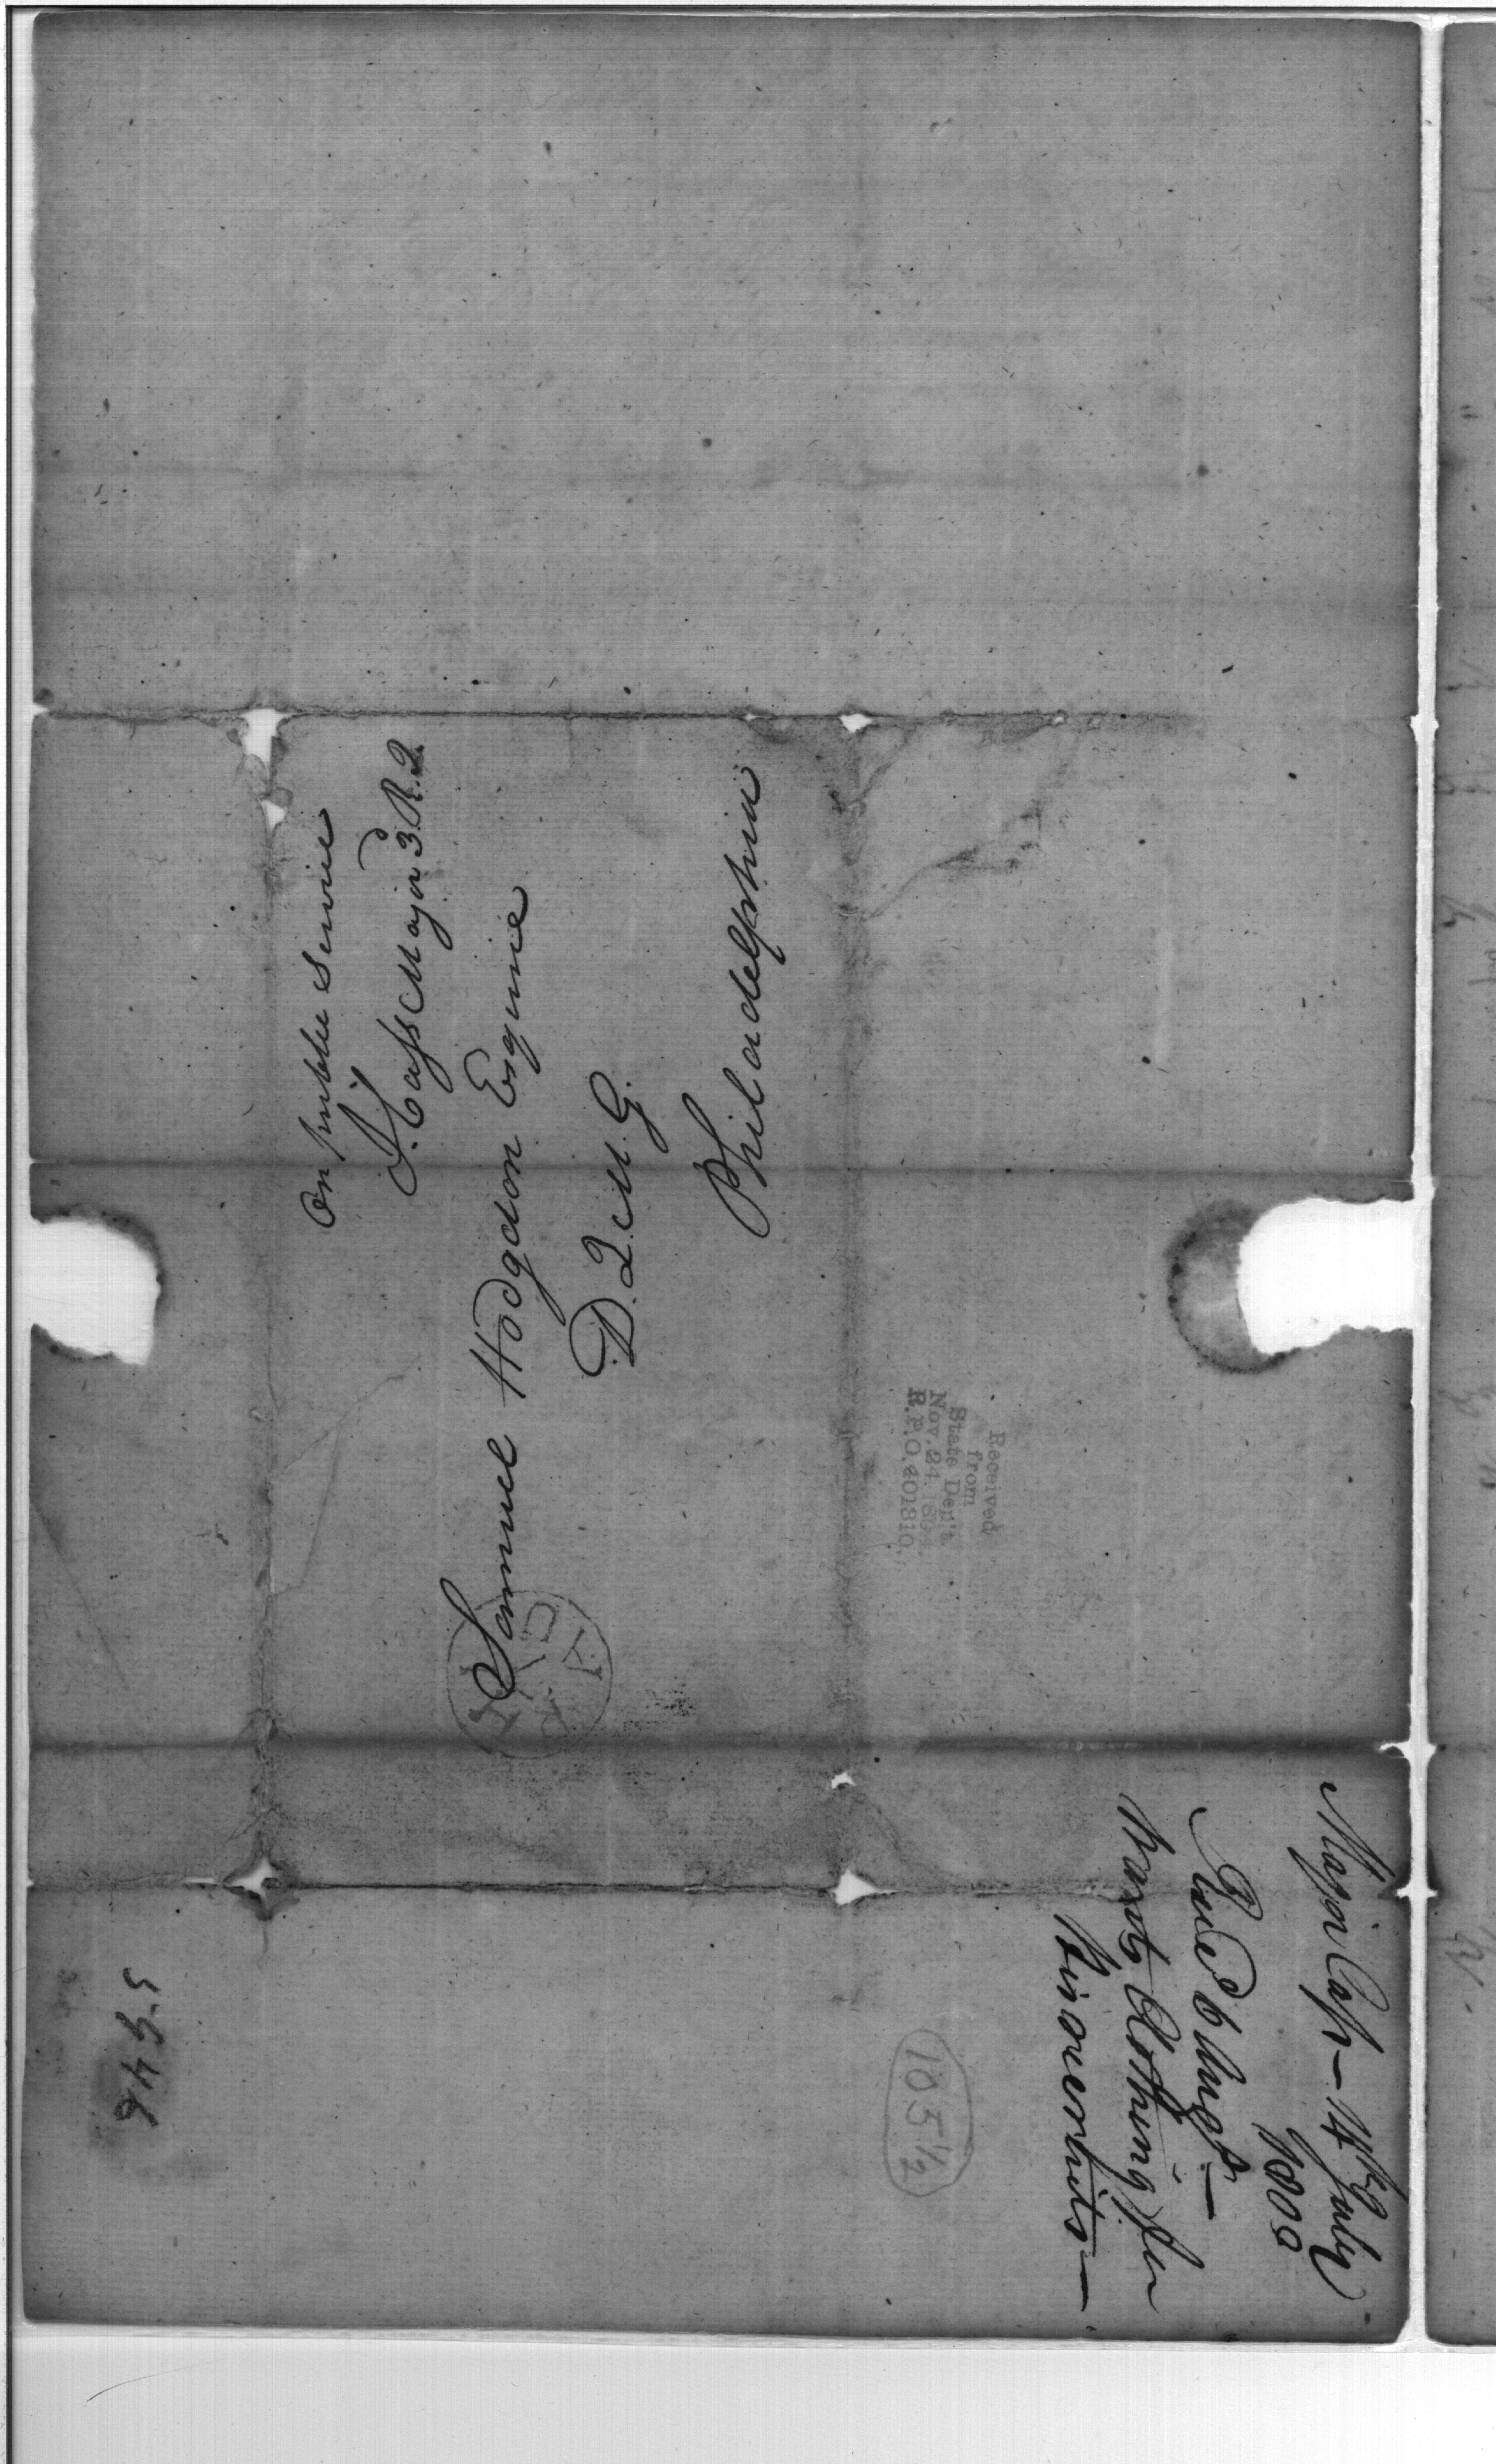 On public Service
J. Cass Major 3. R. 2
Samuel Hodgdon Esquire
D. Q. M. G.
Philadelphia
Received
from
State Dep't.
Nov. 24
R. P. O. 201810.
Major Cass — 14th July
1800
Recd 6 Augt —
wants Clothing for
5946
105 1/2